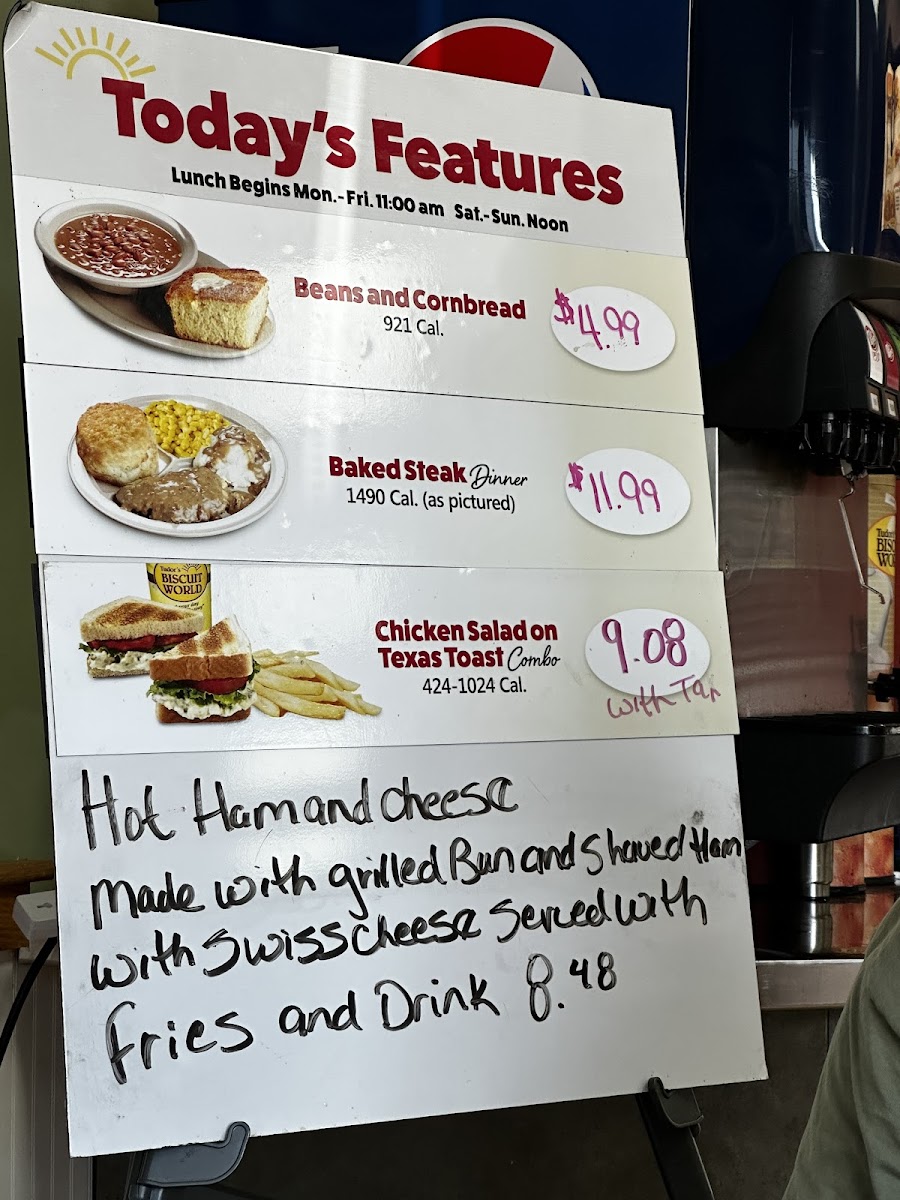 Today's Features
Lunch Begins Mon.-Fri. 11:00 am Sat.-Sun. Noon
Beans and Cornbread
921 Cal.
$4.99
Baked Steak Dinner
1490 Cal. (as pictured)
$11.99
Tudor's
BISCUIT
WORLD
Chicken Salad on
Texas Toast Combo
424-1024 Cal.
9.08
with Tax
Hot Ham and cheese
Made with grilled Bun and shaved Ham
with swiss cheese served with
fries and Drink 8.48